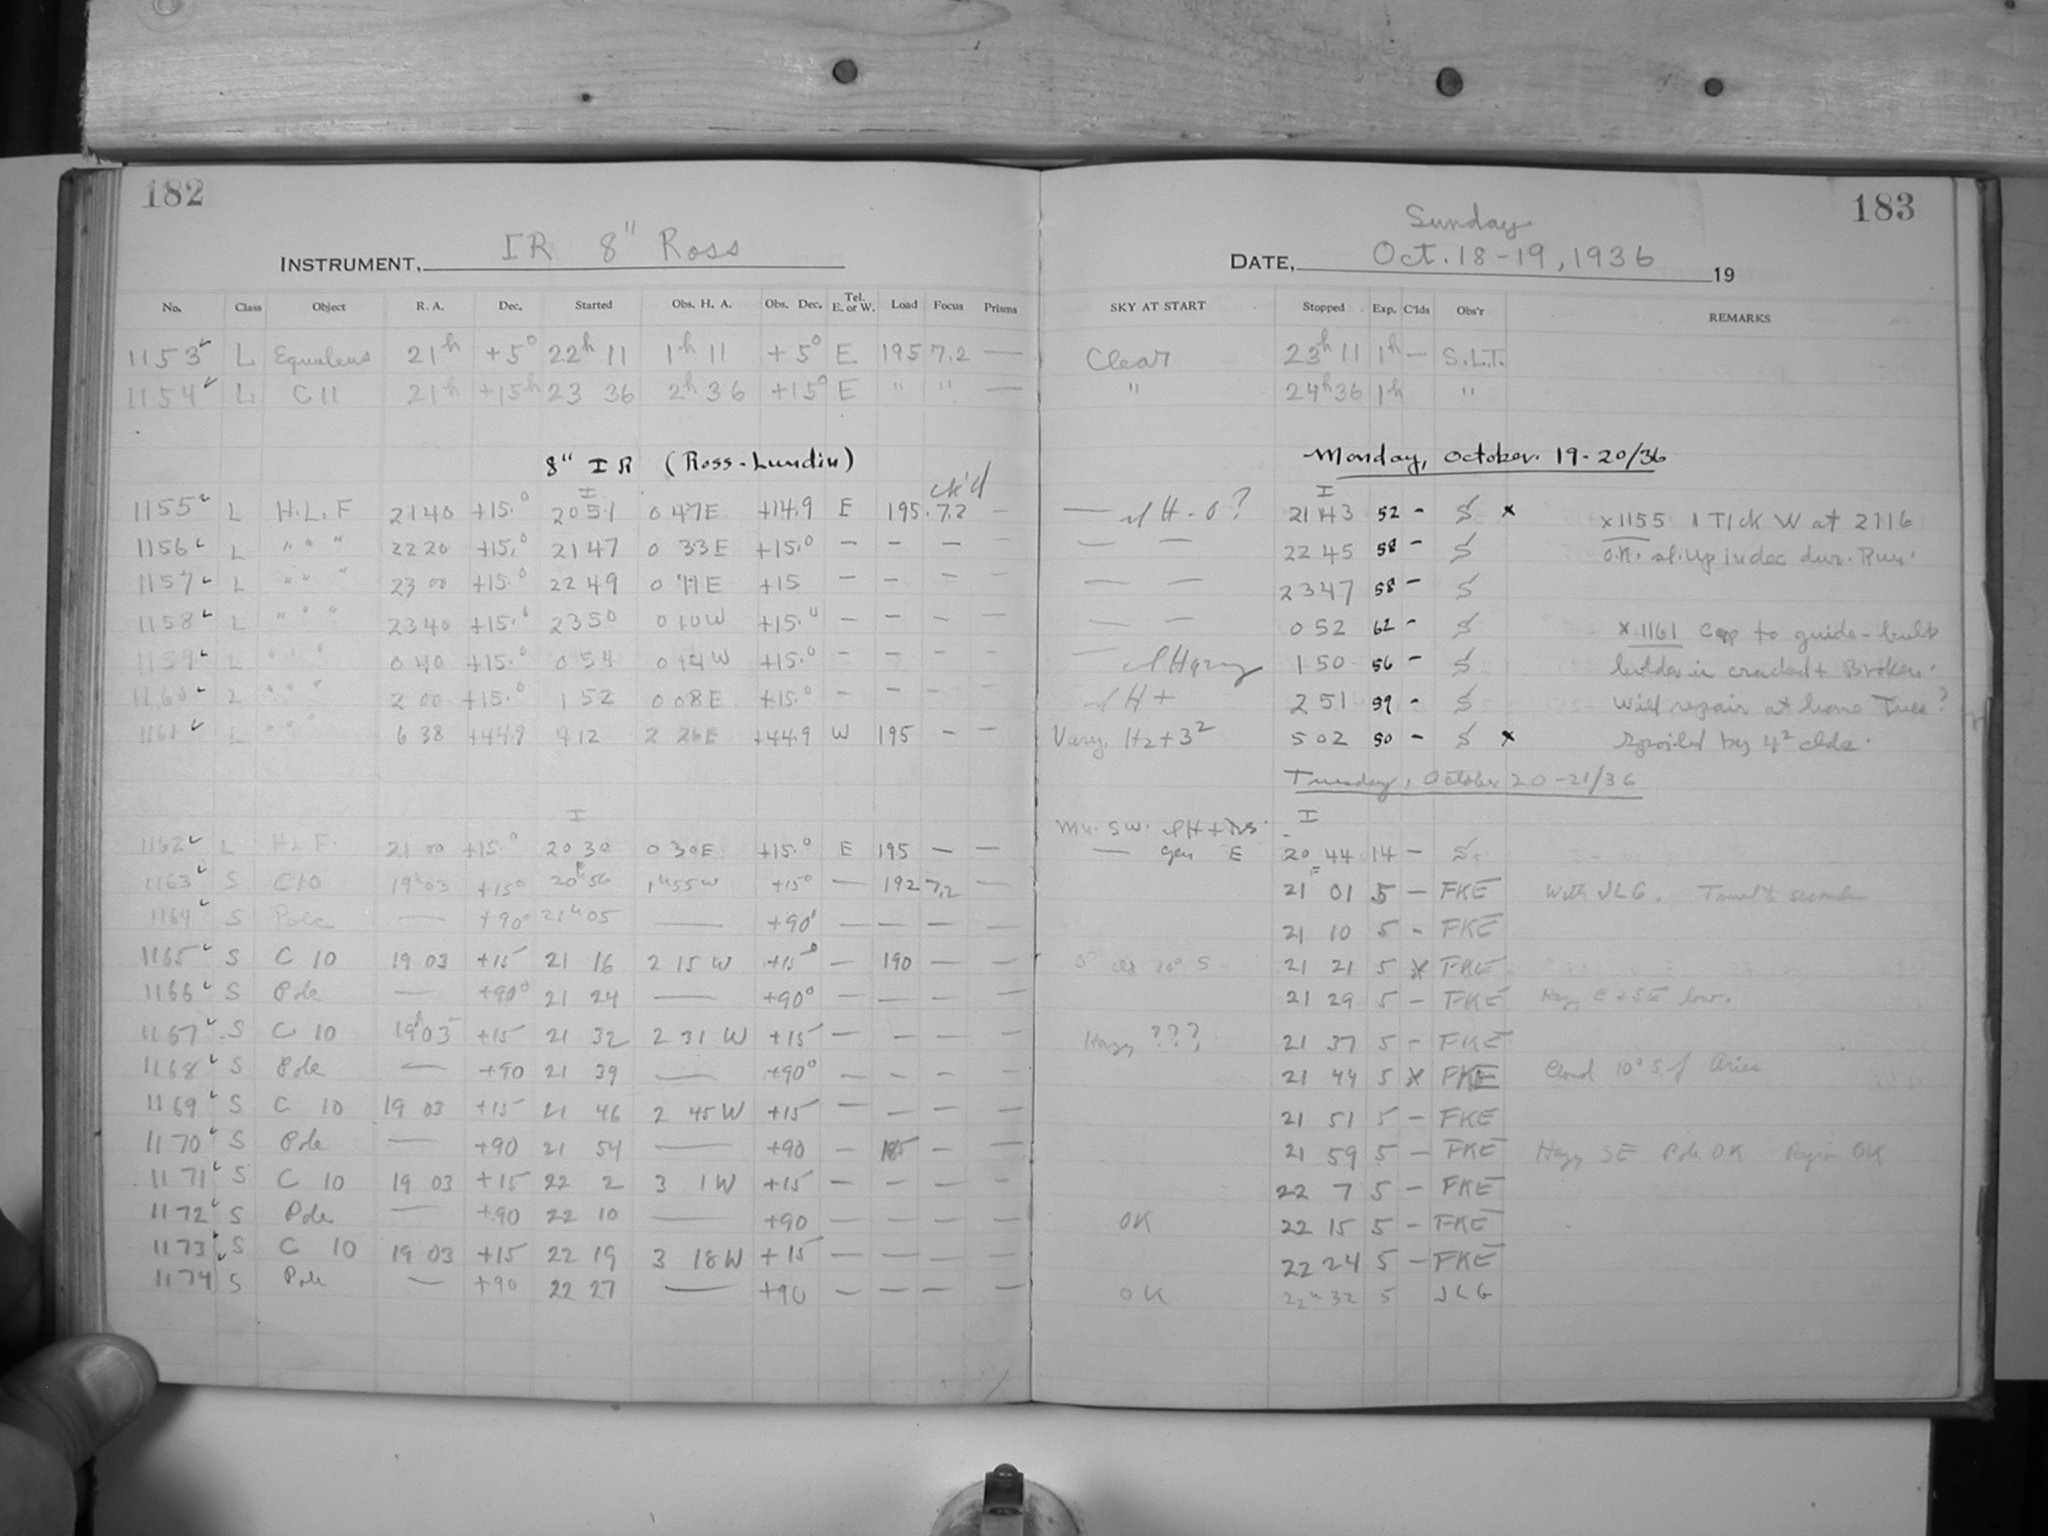 182
INSTRUMENT, IR 8" Ross
No. Class Object R. A. Dec. Started Obs. H. A. Obs. Dec. Tel. E. or W. Load Focus Prisms
1153 L Equuleus 21h +5° 22h 11 1h 11 +5° E. 195 7.2 —
1154 L C 11 21h +15h 23 36 2h 36 +15° E " " —
8" IR (Ross-Lundin)
ck'd
I
1155 L H.L.F 21 40 +15.0 20 51 0 47E +14.9 E 195. 7.2 —
1156 L " " " 22 20 +15.0 21 47 0 33E +15.0 — — — —
1157 L " " " 23 00 +15.0 22 49 0 11E +15 — — — —
1158 L " " " 23 40 +15.0 23 50 0 10W +15.0 — — — —
1159 L " " " 0 40 +15.0 0 54 0 14W +15.0 — — — —
1160 L " " " 2 00 +15.0 1 52 0 08E +15.0 — — — —
1161 L " " 6 38 +44.9 4 12 2 26E +44.9 W 195 — —
I
1162 L H.L.F. 21 00 +15.0 20 30 0 30E +15.0 E 195 — —
1163 S C10 19h03 +15° 20h56 1h55W +15° — 192 7.2 —
1164 S Pole — +90° 21h05 — +90° — — — —
1165 S C 10 19 03 +15 21 16 2 15 W +15° — 190 — —
1166 S Pole — +90° 21 24 — +90° — — — —
1167 S C 10 19h03 +15 21 32 2 31 W +15 — — — —
1168 S Pole — +90 21 39 — +90° — — — —
1169 S C 10 19 03 +15 21 46 2 45 W +15 — — — —
1170 S Pole — +90 21 54 — +90 — 185 — —
1171 S C 10 19 03 +15 22 2 3 1 W +15 — — — —
1172 S Pole — +90 22 10 — +90 — — — —
1173 S C 10 19 03 +15 22 19 3 18W +15 — — — —
1174 S Pole — +90 22 27 — +90 — — — —
183
Sunday
DATE, Oct. 18-19, 1936 19
SKY AT START Stopped Exp. C'lds Obs'r REMARKS
Clear 23h 11 1h — S.L.T.
" 24h36 1h "
Monday, October. 19-20/36
I
— H-0? 21 43 52 - S x x1155 1 Tick W at 2116
— — 22 45 58 - S O.K. sl. up in dec dur. Run.
— — 23 47 58 - S
— — 0 52 62 - S x 1161 Cap to guide-bulb
Hazy 1 50 56 - S holder is cracked + Broken.
H+ 2 51 59 - S Will repair at home Tues?
Vary, H2+3² 5 02 50 - S x Spoiled by 4² clds.
Tuesday, October 20-21/36
I
— gen E 20 44 14 - S.
21 01 5 — FKE With JLG.
21 10 5 - FKE
10° S 21 21 5 x FKE
21 29 5 - FKE Hazy E + SE low.
Hazy ???, 21 37 5 - FKE
21 44 5 x FKE Cloud 10° S of Aries
21 51 5 — FKE
21 59 5 — FKE Hazy SE Pole OK Region OK
22 7 5 — FKE
OK 22 15 5 — FKE
22 24 5 — FKE
OK 22h 32 5 JLG